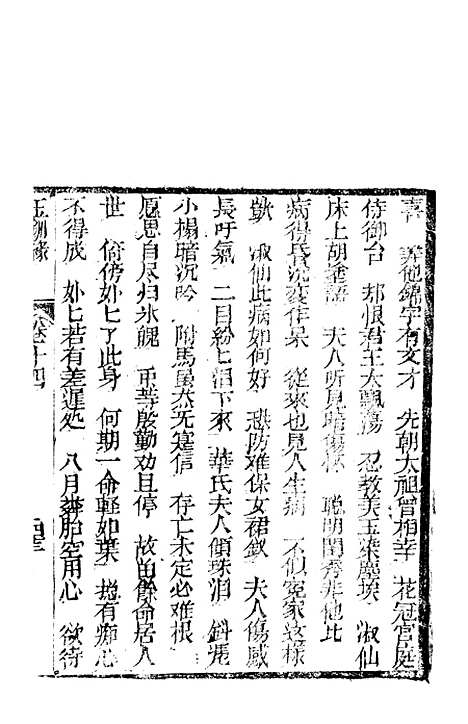 喜 羨他錦字有文才 先朝太祖曾相幸 花冠宮庭
侍御台 却恨君王太飄蕩 忍教美玉染塵埃 淑仙
床上胡塗語 夫人所見暗傷怀 聰明閨秀非他比
病得昏沉变作呆 從來也見人生病 不似冤家这樣
獃 淑仙此病如何好 恐防难保女裙釵 夫人傷感
長吁氣 二目紛匕泪下來 華氏夫人傾珠泪 斜兆
小楊暗沉吟 附馬虽然无寔信 存亡未定必难根
愿思自尽归氷魄 再等殷勤劝且停 故畄餘命居人
世 倚傍妳匕了此身 何期一命輕如葉 总有痴心
不得成 妳匕若有差遲処 八月葬胎空用心 欲待
玉釧緣 卷十四 四三